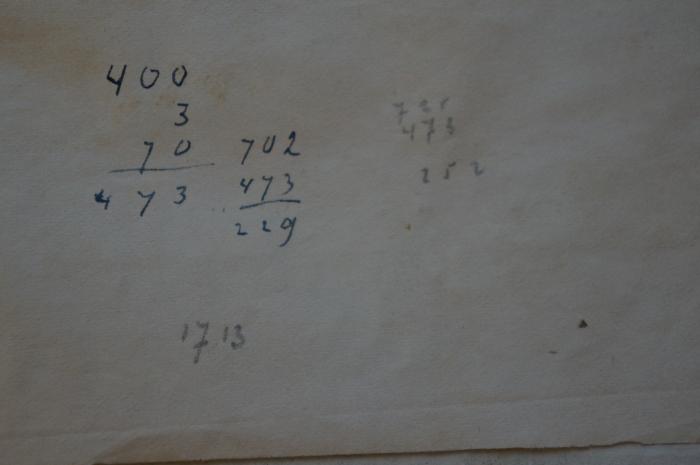 400
3
70
473
702
473
229
725
473
252
1713